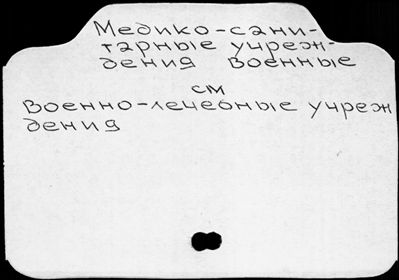 Медико-сани-
тарные учреж-
дения военные
см
Военно-лечебные учреж
дения